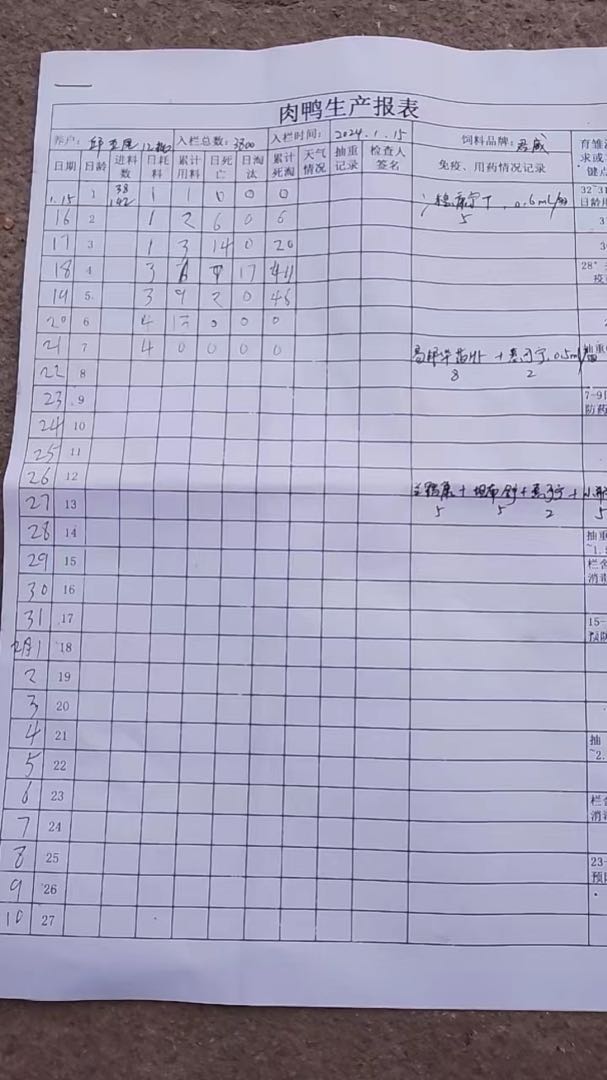 肉鸭生产报表
养户: 12批 入栏总数: 3800 入栏时间: 2024.1.15 饲料品牌: 育雏
日期 日龄 进料数 日耗料 累计用料 日死亡 日淘汰 累计死淘 天气情况 抽重记录 检查人签名 免疫、用药情况记录 求或 键点
1.15 1 38 142 1 1 0 0 0 0.6ml/ 5 32°31 日龄
16 2 1 2 6 0 6 3
17 3 1 3 14 0 20 3
18 4 3 17 41 28° 疫
19 5 3 9 2 0 45
20 6 4 0 0 0
21 7 4 0 0 0 0 + 0.5ml/ 8 2 抽重
22 8
23 9 7-9日 防药
24 10
25 11
26 12
27 13 + + + 5 5 2 5
28 14 抽重 ~1.
29 15 栏舍 消毒
30 16
31 17 15- 预防
2月1 18
2 19
3 20
4 21 抽 ~2.
5 22
6 23 栏舍 消毒
7 24
8 25 23- 预防
9 26
10 27